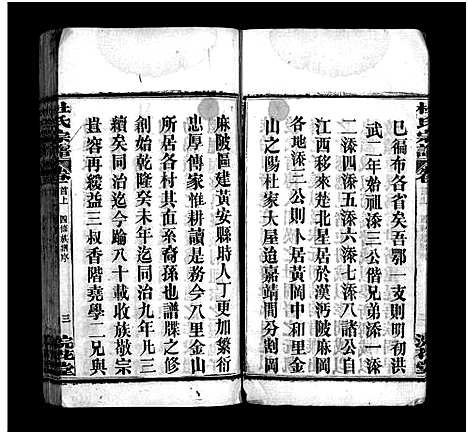 巳徧布各省矣吾鄂一支則明初洪
武二年始祖添三公偕兄弟添一添
二添四添五添六添七添八諸公自
江西移來楚北星居於漢沔陂麻岡
各地添三公則卜居黃岡中和里金
山之陽杜家大屋迨嘉靖間分割岡
麻陂區建黃安縣時人丁更加繁衍
忠厚傳家惟耕讀是務今八里金山
所居各村其直系裔孫也譜牒之修
創始乾隆癸未年迄同治九年凡三
續矣同治迄今踰八十載收族敬宗
豈容再緩益三叔香階堯學二兄與
杜氏宗譜
首上
四修族譜序
三
浣花堂